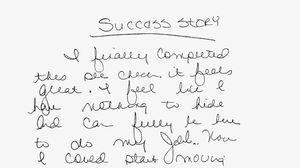 Success Story
I finally completed
this pee check. it feels
great. I feel like I
have nothing to hide
and can fully be here
to do my Job. Now
I could start moving